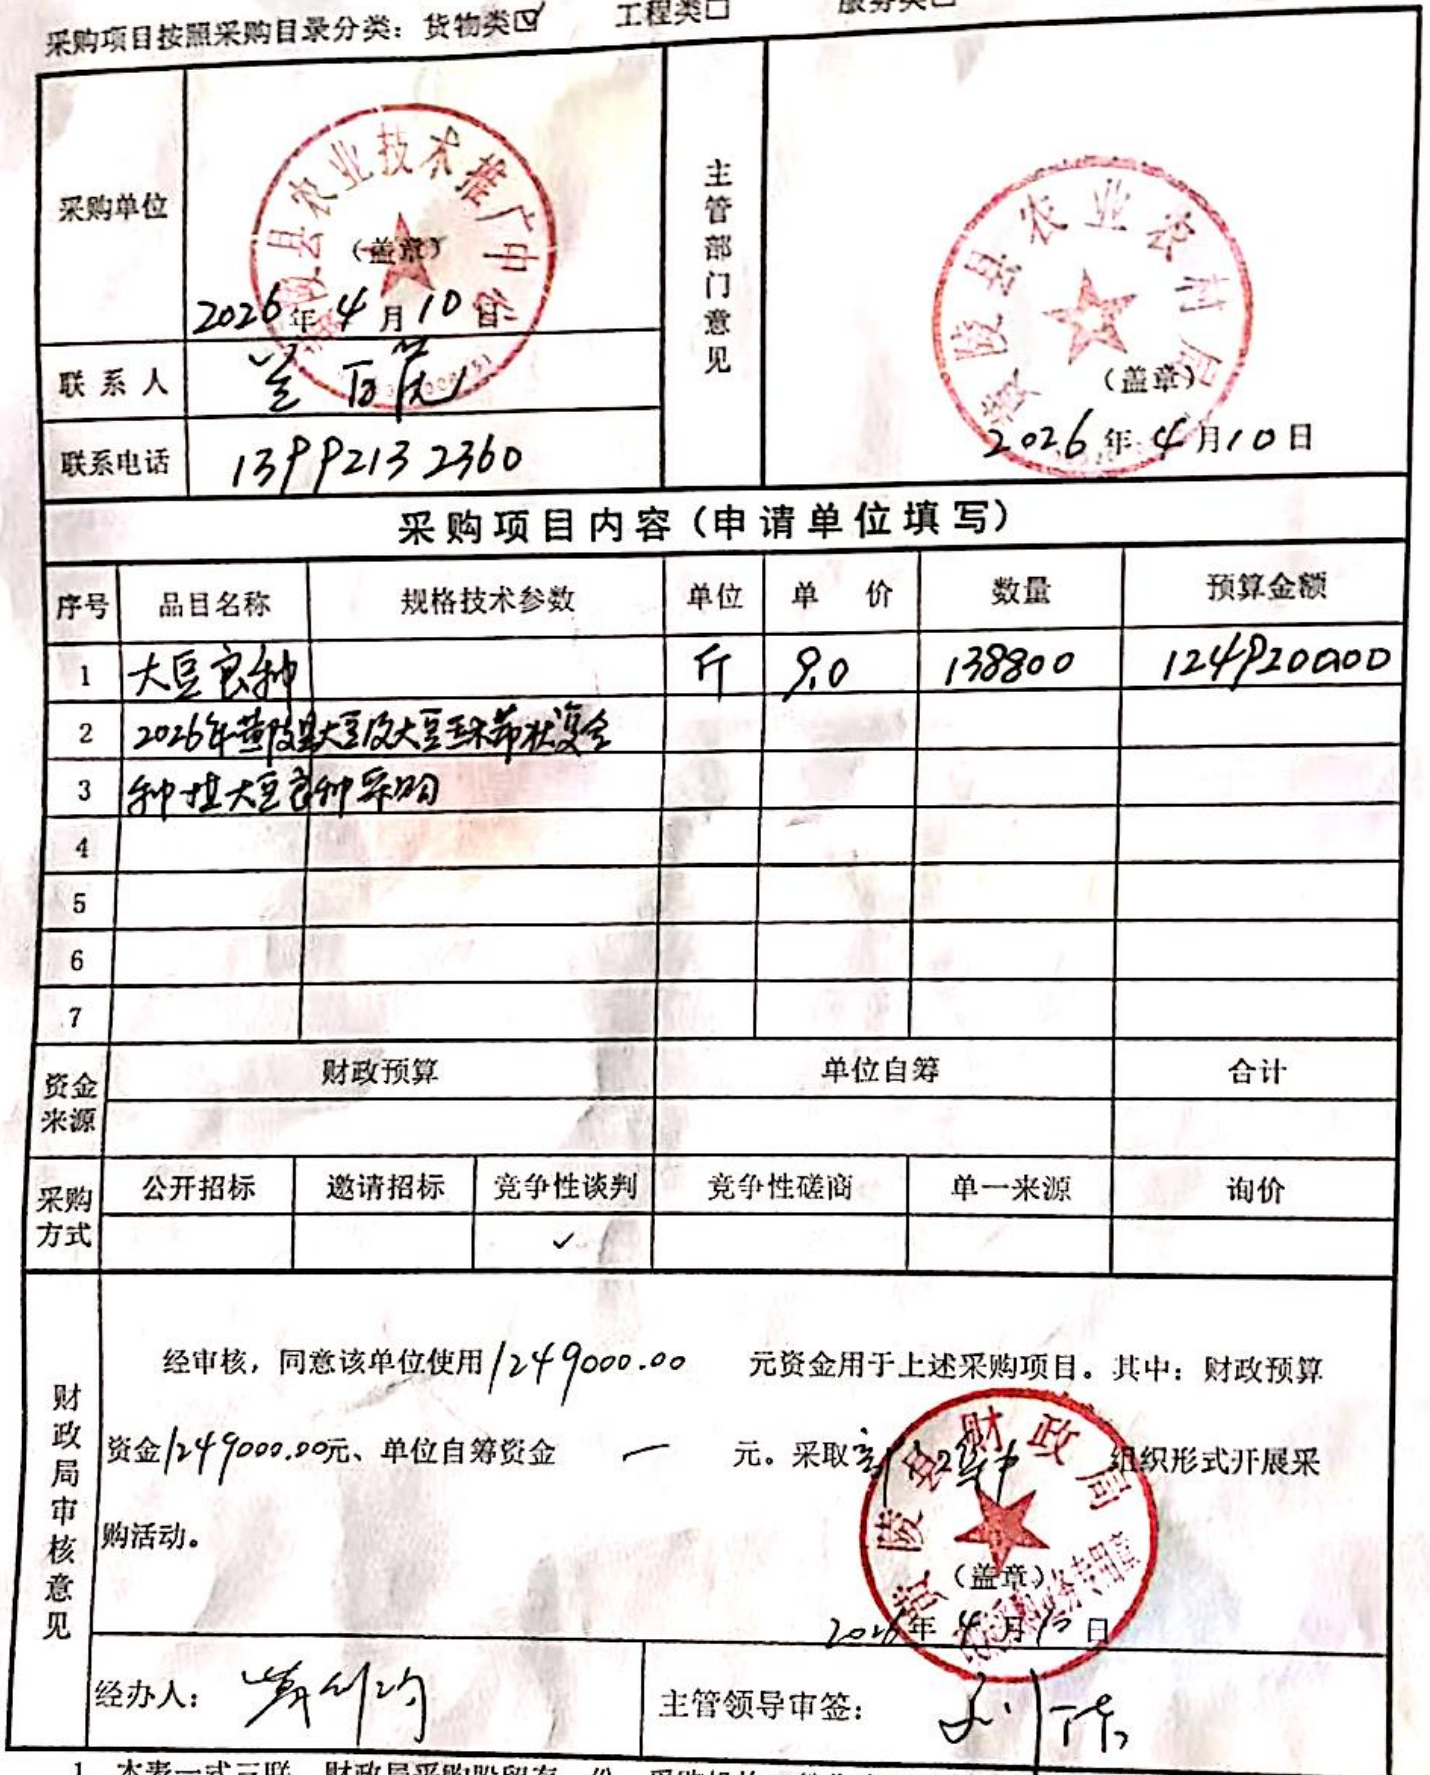 采购项目按照采购目录分类：货物类☑ 工程类□ 服务类□
采购单位
黄陵县农业技术推广中心
（盖章）
2026年4月10日
主管部门意见
黄陵县农业农村局
（盖章）
2026年4月10日
联系人
联系电话 13992132360
采购项目内容（申请单位填写）
序号 品目名称 规格技术参数 单位 单价 数量 预算金额
1 大豆良种 斤 9.0 138800 1249200.00
2 2026年黄陵县大豆及大豆玉米带状复合
3 种植大豆良种采购
4
5
6
7
资金来源 财政预算 单位自筹 合计
采购方式 公开招标 邀请招标 竞争性谈判 竞争性磋商 单一来源 询价
✓
财政局审核意见
经审核，同意该单位使用1249000.00元资金用于上述采购项目。其中：财政预算
资金1249000.00元、单位自筹资金 — 元。采取 组织形式开展采
购活动。
黄陵县财政局
（盖章）
2026年4月10日
经办人：
主管领导审签：